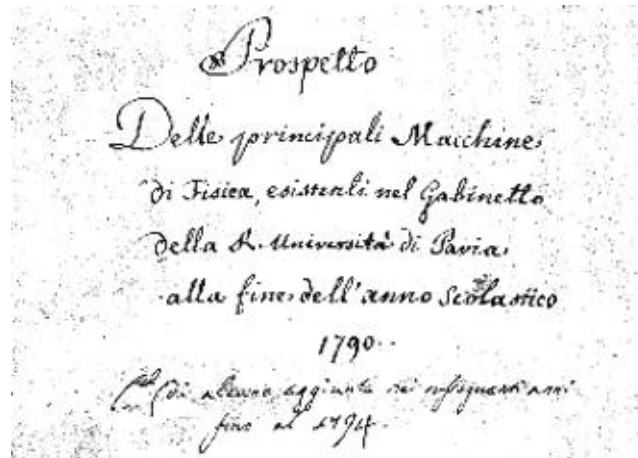 Prospetto
Delle principali Macchine
di Fisica, esistenti nel Gabinetto
della R. Università di Pavia
alla fine dell'anno Scolastico
1790.
di alcune aggiunte nei susseguenti anni
fino al 1794.